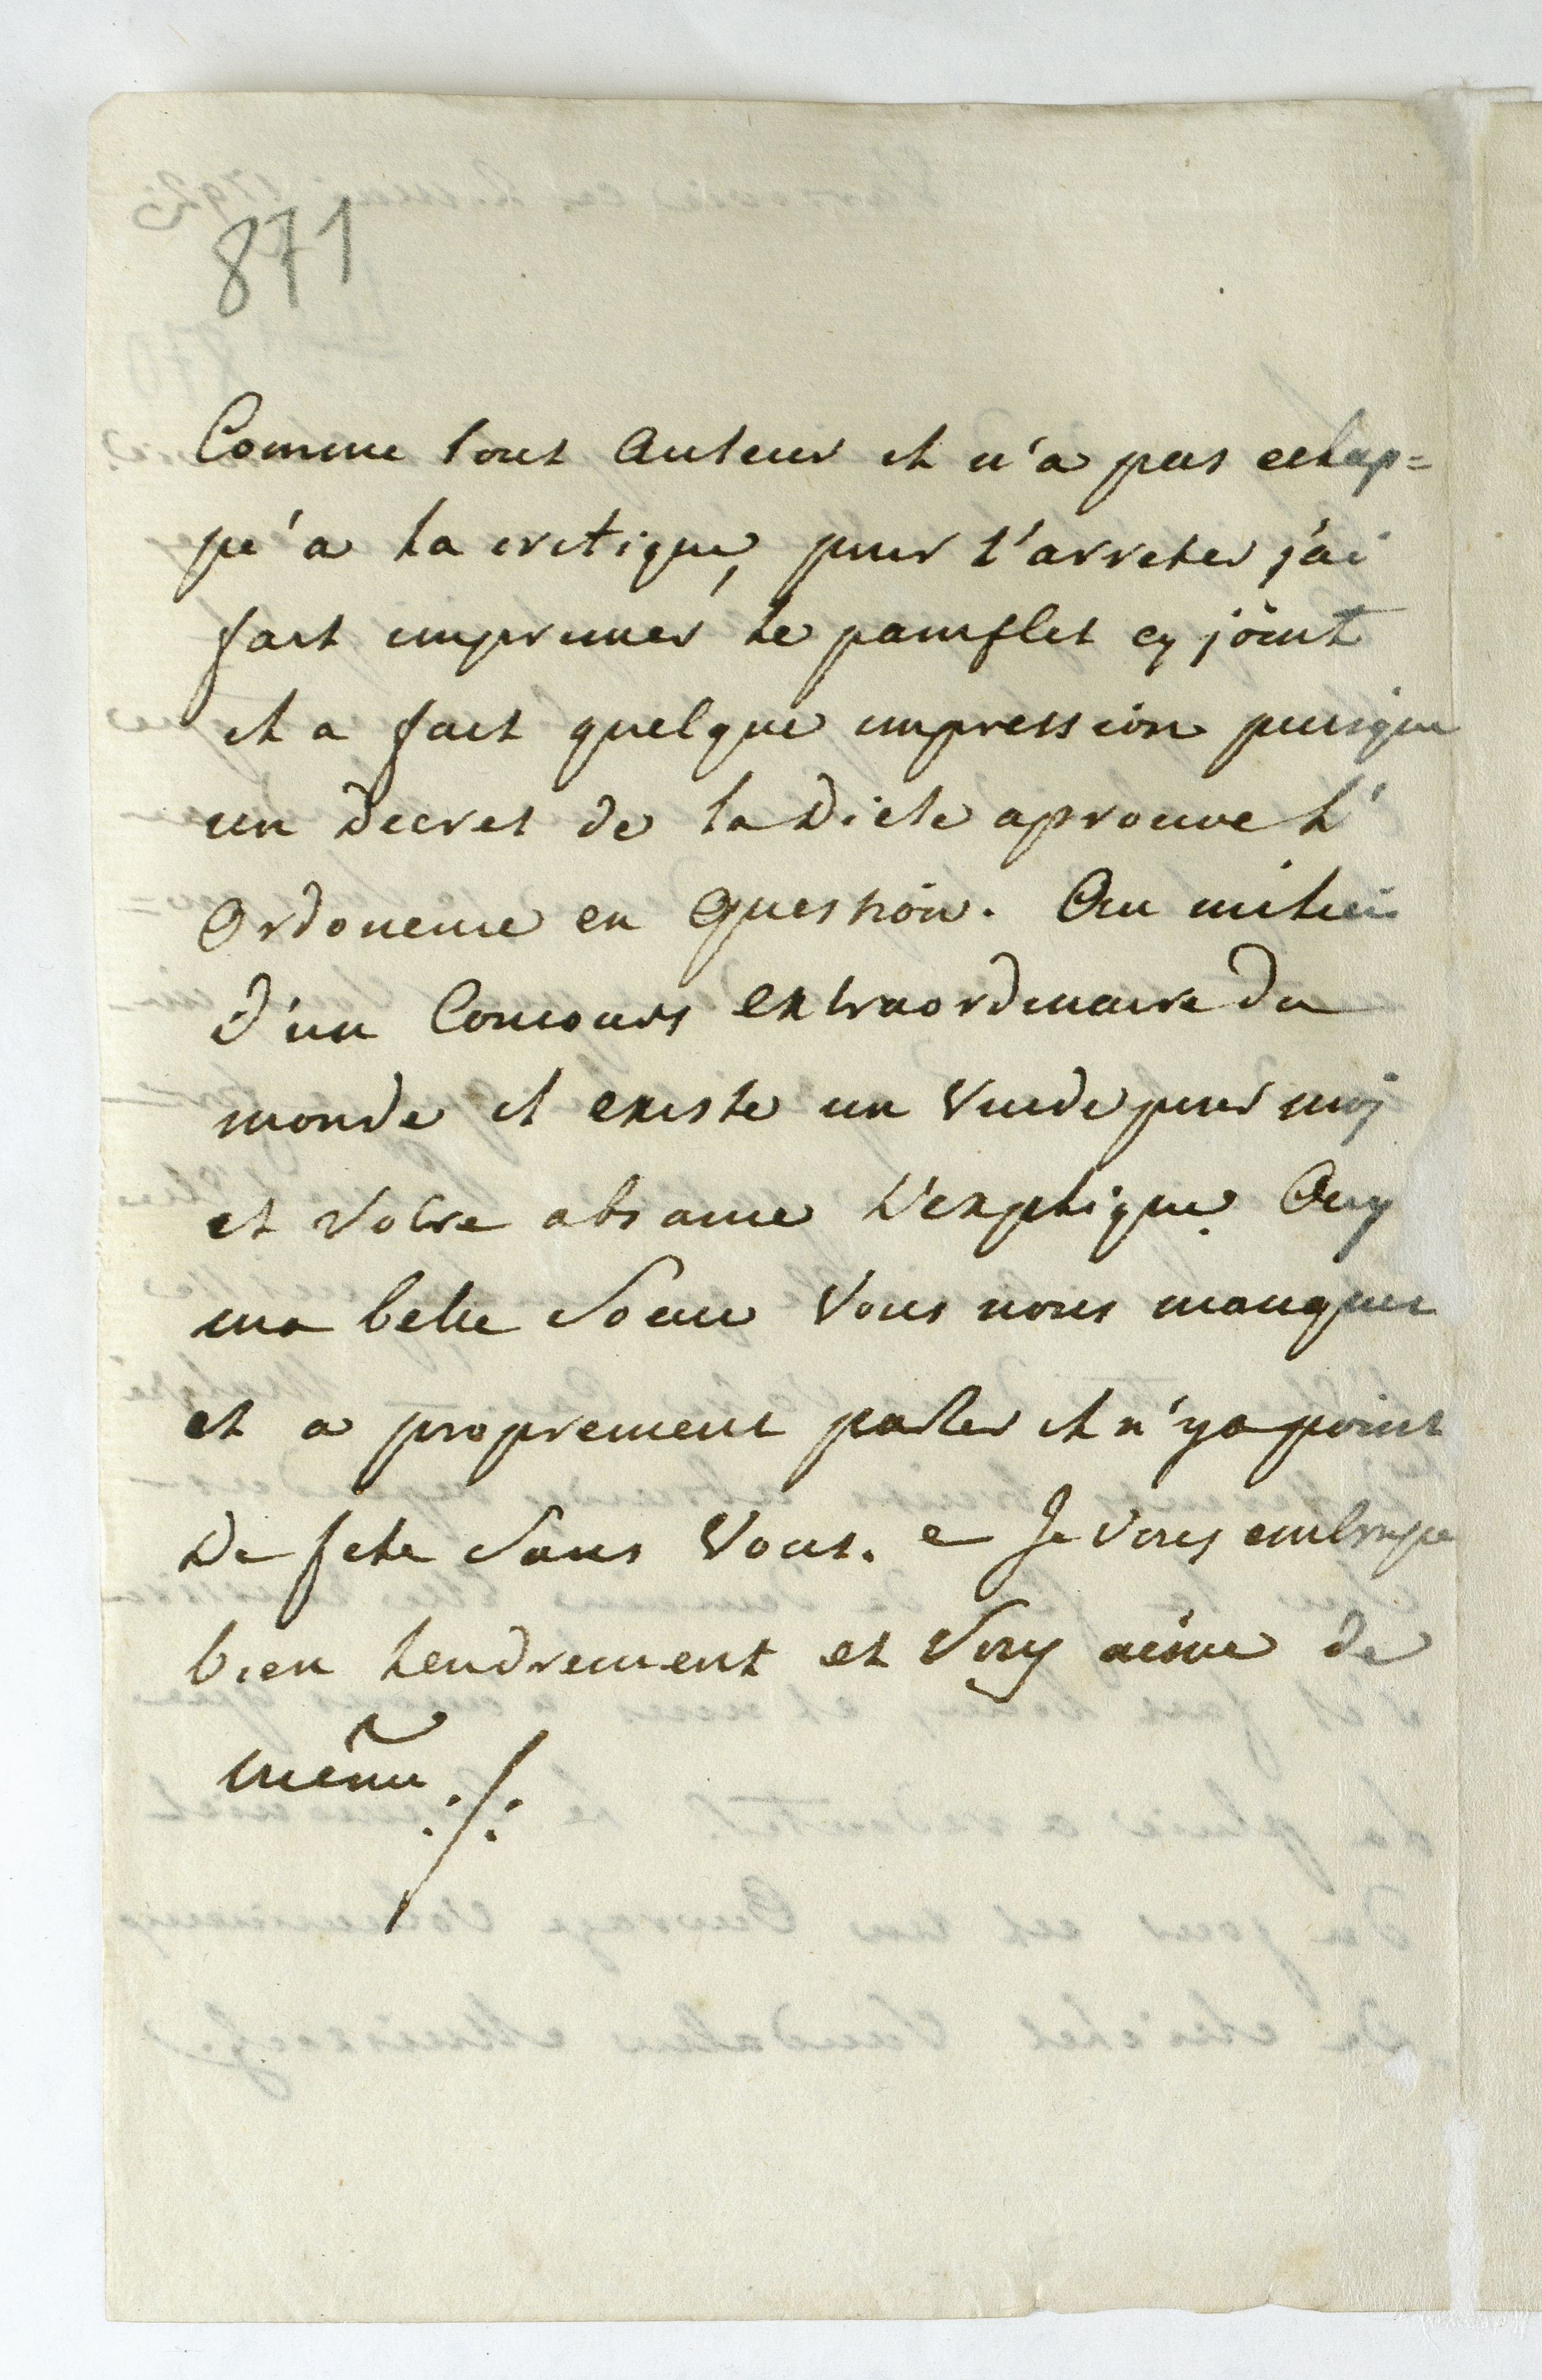 871
Comme tout Auteur il n'a pas echap=
pé a la critique, pour l'arreter j'ai
fait imprimer le pamflet cy joint
il a fait quelque impression puisque
un decret de la Diete aprouve l'
Ordonence en question. Au milieu
d'un Concours extraordinaire du
monde il existe un vuide pour moi
et votre absance l'explique. Ouy
ma belle Soeur Vous nous manquez
et a proprement parler il n'y a point
de fete sans Vous. Je Vous embrasse
bien tendrement et Vous aime de
même ./.